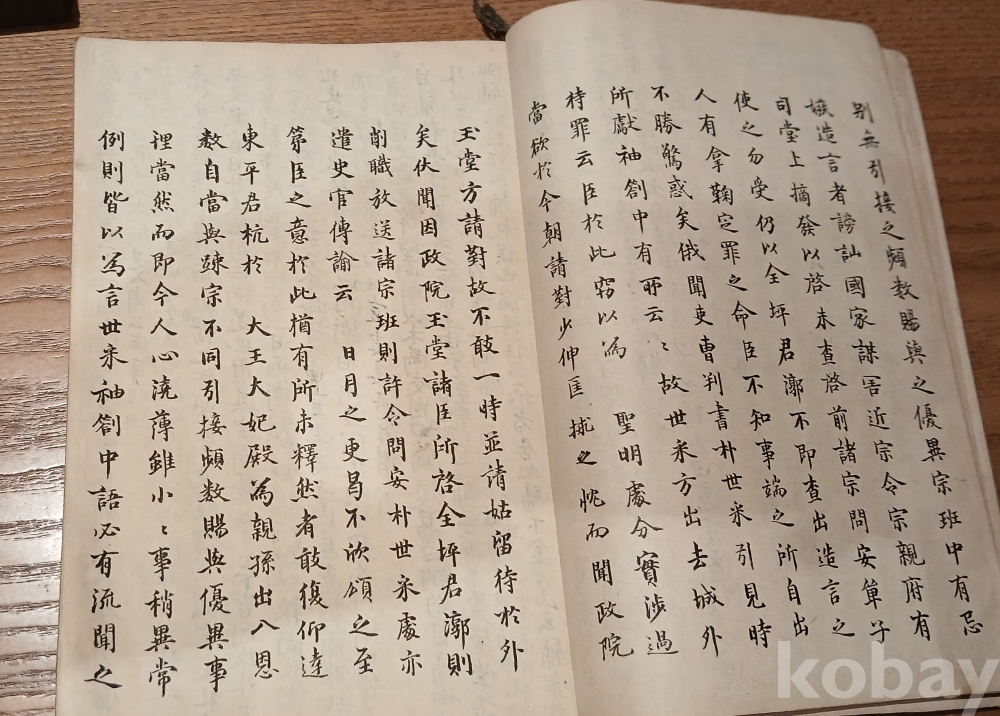 別無引接之頻数賜與之優異宗班中有忌
嫉造言者謗訕國家謀害近宗令宗親府有
司堂上摘發以啓未查啓前諸宗問安單子
使之勿受仍以全坪君漷不即查出造言之
人有拿鞠定罪之命臣不知事端之所自出
不勝驚惑矣俄聞吏曹判書朴世采引見時
所獻袖劄中有所云〻故世采方出去城外
待罪云臣於此竊以為 聖明處分實涉過
當欲於今朝請對少伸匡捄之忱而聞政院
玉堂方請對故不敢一時並請姑留待於外
矣伏聞因政院玉堂諸臣所啓全坪君漷則
削職放送諸宗班則許令問安朴世采處亦
遣史官傳諭云 日月之更曷不欣頌之至
第臣之意於此猶有所未釋然者敢復仰達
東平君杭於 大王大妃殿為親孫出入恩
数自當與踈宗不同引接頻数賜與優異事
理當然而即今人心澆薄雖小〻事稍異常
例則皆以為言世采袖劄中語必有流聞之
kobay